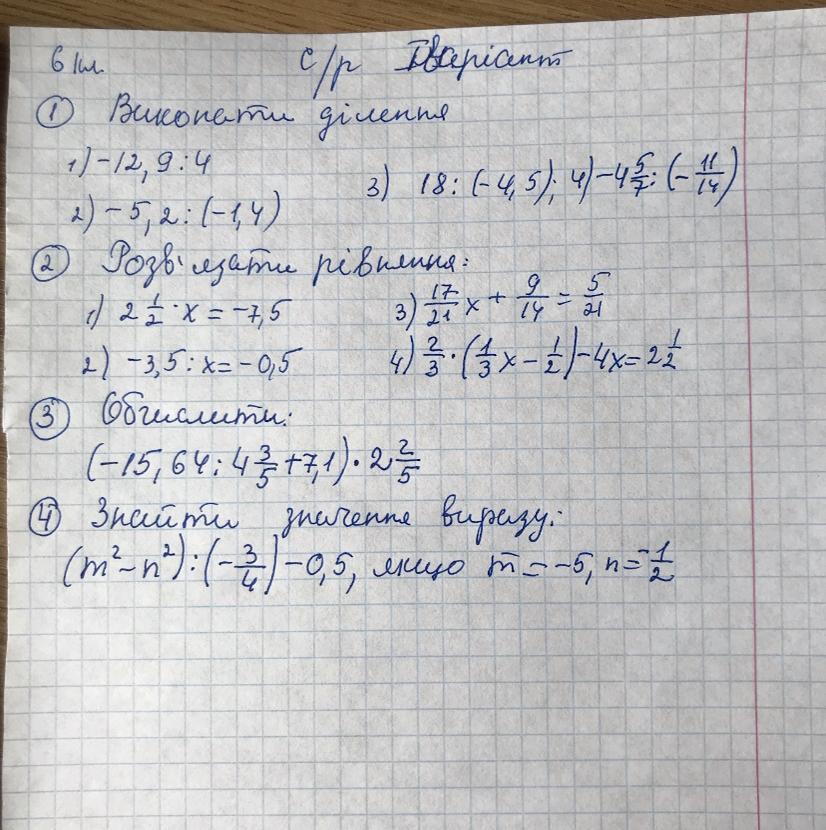 6 кл. с/р ІІ варіант
① Виконати ділення
1) -12,9 : 4
3) 18 : (-4,5); 4) -4 5/7 : (-11/14)
2) -5,2 : (-1,4)
② Розв'язати рівняння:
1) 2 1/2 · x = -7,5
3) 17/21 x + 9/14 = 5/21
2) -3,5 : x = -0,5
4) 2/3 · (1/3 x - 1/2) - 4x = 2 1/2
③ Обчислити:
(-15,64 : 4 3/5 + 7,1) · 2 2/5
④ Знайти значення виразу:
(m² - n²) : (-3/4) - 0,5, якщо m = -5, n = -1/2